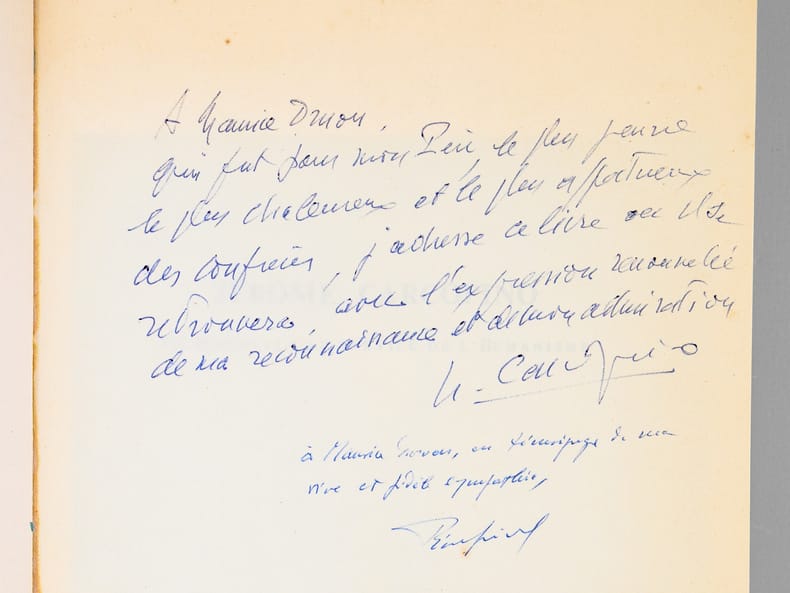 A Maurice Druon,
qui fut pour mon Père, le plus jeune
le plus chaleureux et le plus affectueux
des confrères, j'adresse ce livre où il se
retrouvera, avec l'expression renouvelée
de ma reconnaissance et de mon admiration
à Maurice Druon, en témoignage de ma
vive et fidèle sympathie,